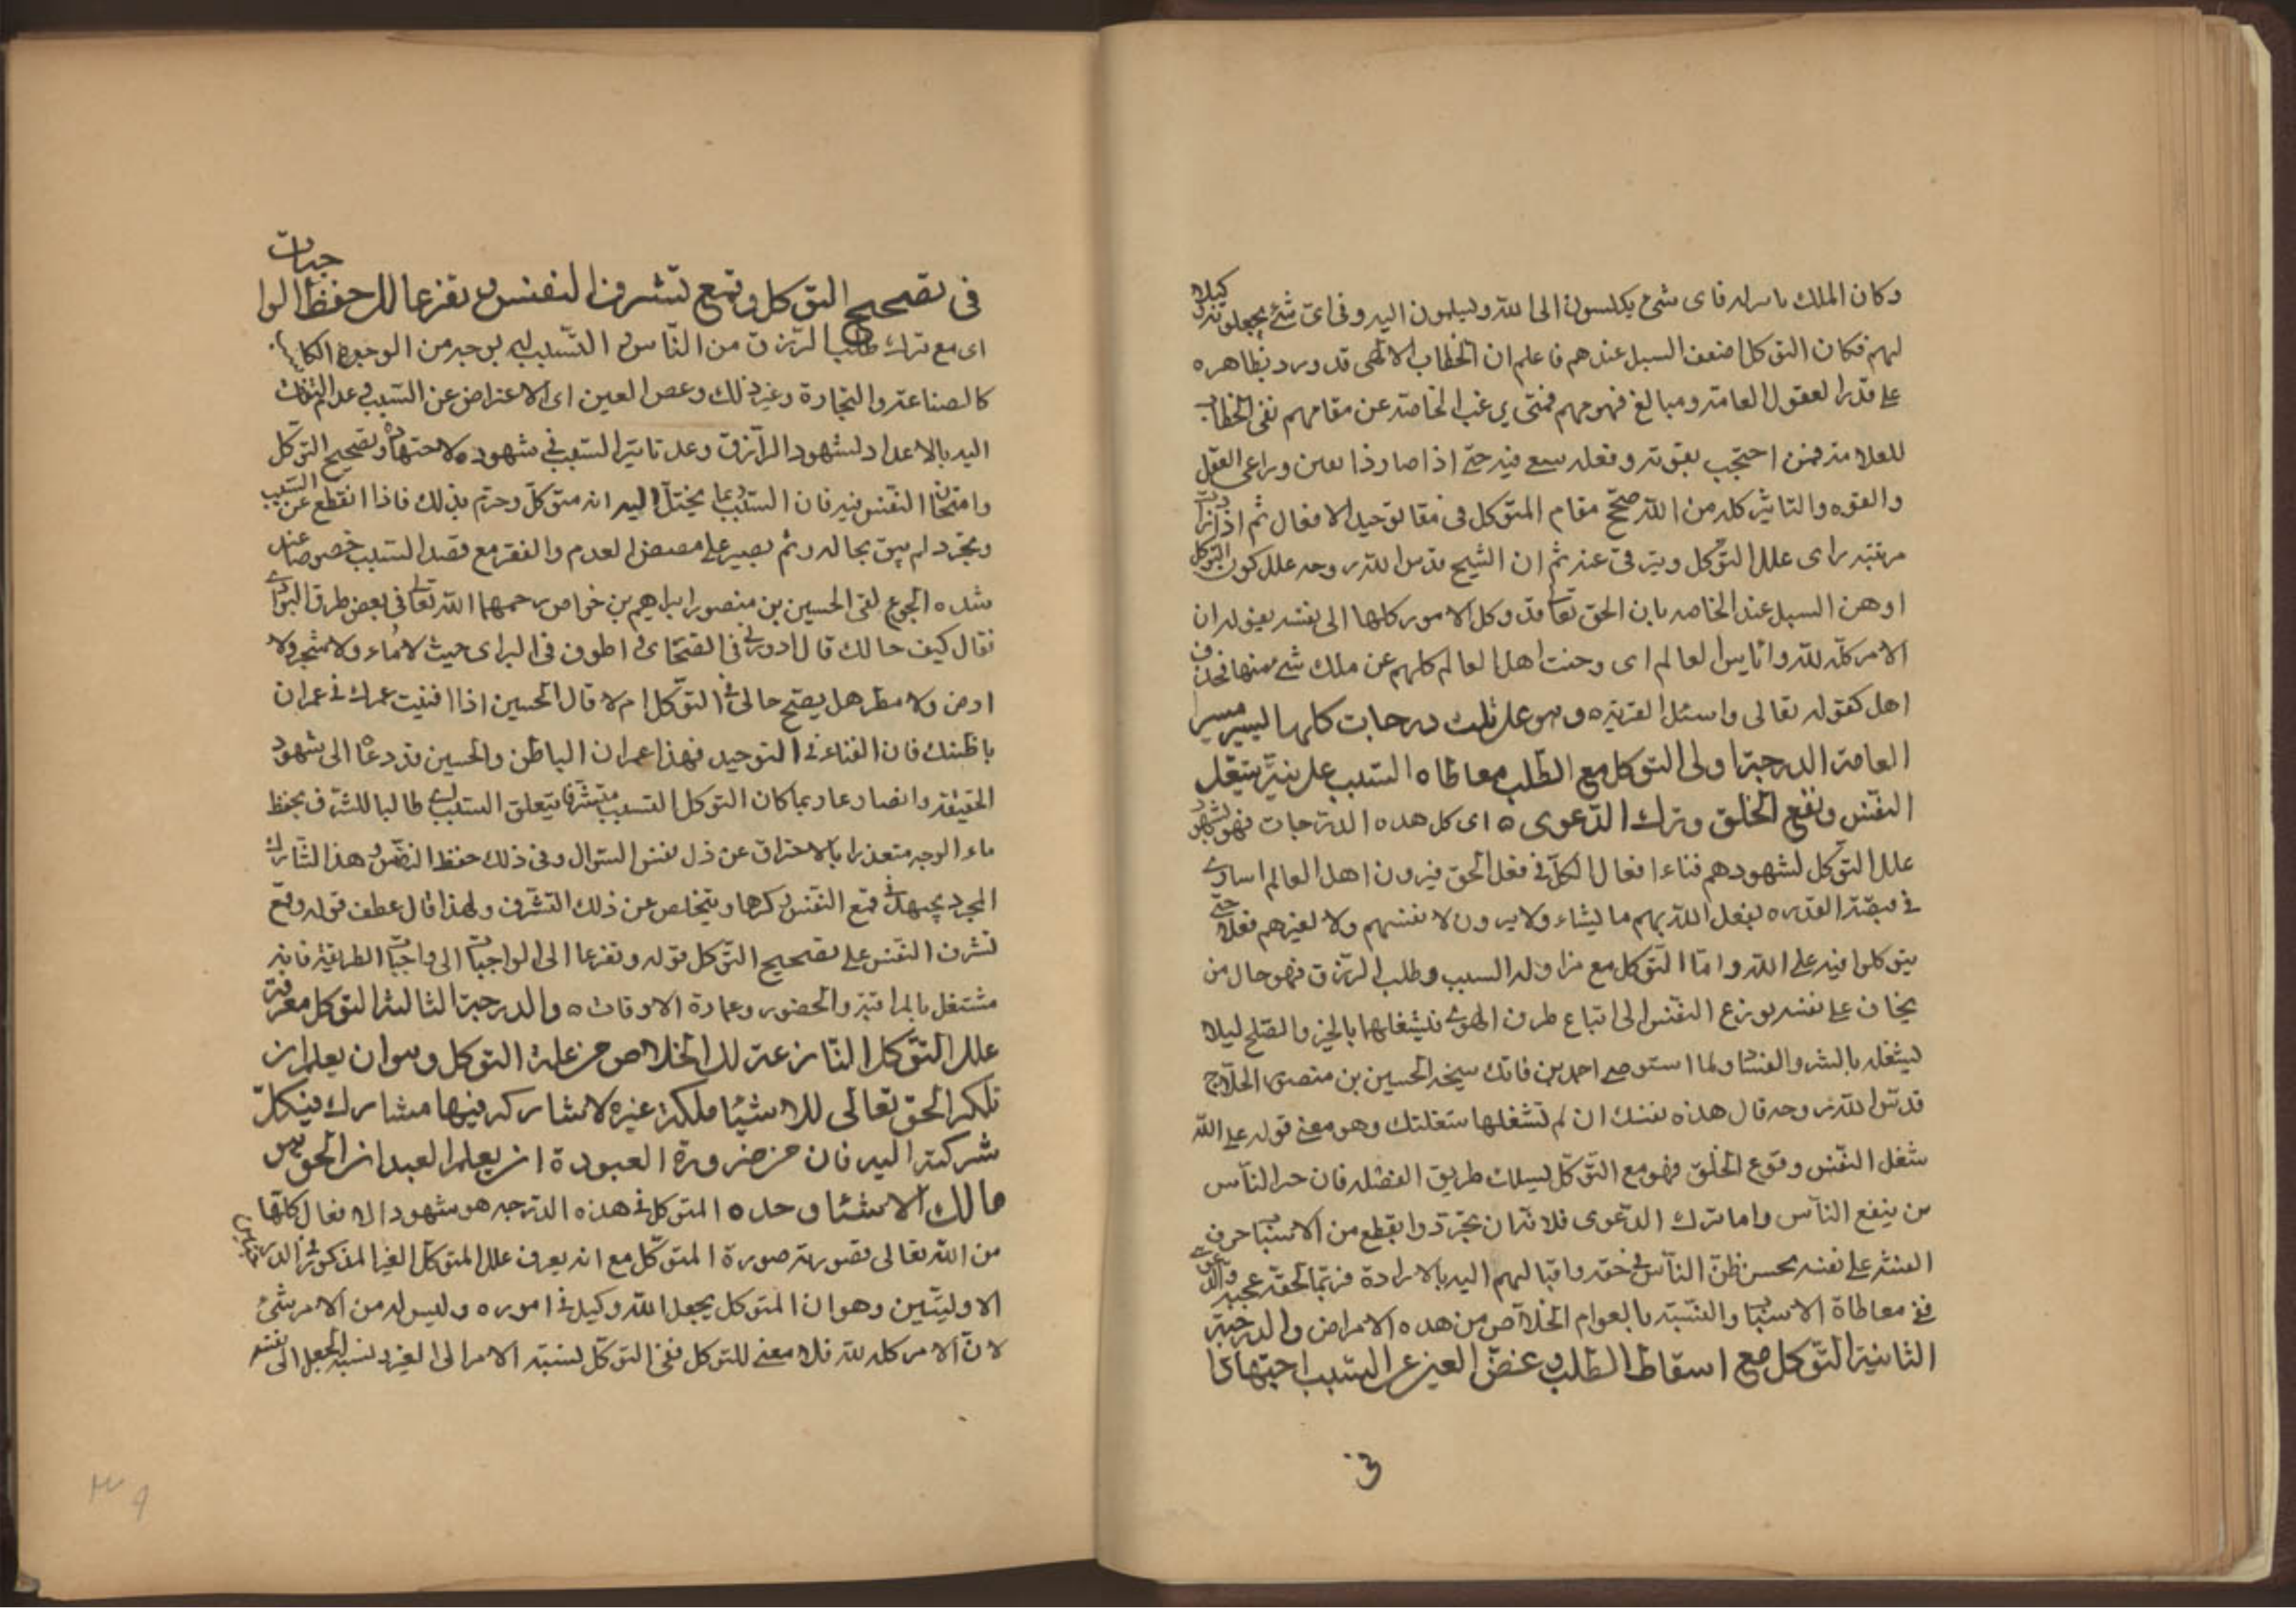 وكان الملك باسره فاى شئ يكلون الى الله ويسلمون اليه وفى اى شئ يجعلونه وكيلا
لهم فكان التوكل اضعف السبل عندهم فاعلم ان الخطاب الالهى قد ورد بظاهره
على قدر العقول العامة ومبالغ فهومهم فمتى يرغب الخاصة عن مقامهم نفى الخطاب
للعلامة فمن احتجب بقوته وفعله سعى فيه حتى اذا صار ذا يقين وراعى العقل
والقوه والتاثير كله من الله صح مقام المتوكل فى مقام توحيد الافعال ثم اذا
مرتبته راى علل التوكل ويترقى عنه ثم ان الشيخ قدس الله روحه علل كون التوكل
اوهن السبل عند الخاصه بان الحق تعالى قد وكل الامور كلها الى نفسه بقوله ان
الامر كله لله وايأس العالم اى اهل العالم كلهم عن ملك شئ منها فحذف
اهل كقوله تعالى واسئل القرية ه وهو على ثلث درجات كلها تسير مسير
العامة الدرجة اولى التوكل مع الطلب ومعاطاه السبب على نية شغل
النفس ونفع الخلق وترك الدعوى ه اى كل هذه الدرجات فهو لشهود
علل التوكل لشهودهم فناء افعال الكل فى فعل الحق فيرون اهل العالم اسارى
فى قبضة القدره يفعل الله بهم ما يشاء ولا يرون لانفسهم ولا لغيرهم فعلا حتى
يتوكلوا فيه على الله واما التوكل مع مزاوله السبب وطلب الرزق فهو حال من
يخاف على نفسه نوزع النفس الى اتباع طرف الهوى فيشغلها بالخير والصلح ليلا
ليشغله بالشر والفساد ولما استوصى احمد بن فاتك شيخه الحسين بن منصور الحلاج
قدس الله روحه قال هذه نفسك ان لم تشغلها شغلتك وهو معنى قوله على الله
شغل النفس ونفع الخلق فهو مع التوكل يسلك طريق الفضيله فان خير الناس
من ينفع الناس واما ترك الدعوى فلانه ان تجرد وانقطع من الاسباب خرف
الفتنه على نفسه بحسن ظن الناس فى حقه واقبالهم اليه بالارادة فربما لحقه عجب
ففى معاطاة الاسباب والتشبه بالعوام الخلاص من هذه الامراض والدرجة
الثانية التوكل مع اسقاط الطلب وغض العين عن السبب اجتهادا
فى تصحيح التوكل وقمع تشرف النفس وتفرغا الى حفظ الواجبات
اى مع ترك طلب الرزق من الناس والتسبب اليه بوجه من الوجوه
كالصناعة والتجارة وغير ذلك وغض العين اى الاعراض عن السبب وعدم التفات
اليه بالاعداد لشهود الرازق وعدم تاثير السبب فى شهوده لاجتهاده وتصحيح التوكل
وامتحان النفس فيه فان السبب ربما يخيل اليه انه متوكل وجزم بذلك فاذا انقطع عن السبب
وتجرد لم يبق بحاله ولم يصبر على مضض العدم والفقر مع فقد السبب خصوصا عند
شده الجوع لقى الحسين بن منصور ابراهيم بن خواص رحمهما الله تعالى فى بعض طرق البوادى
فقال كيف حالك قال ادور فى الصحارى اطوف فى البرارى حيث لا ماء ولا شجر ولا
ارض ولا مطر هل يصح حالى فى التوكل ام لا قال الحسين اذا افنيت عمرك فى عمران
باطنك فاين الفناء فى التوحيد فهذا عمران الباطن والحسين قد دعاه الى شهود
الحقيقة وايضا ربما كان التوكل المتسبب متشرفا يتعلق السبب طالبا للشرف بحفظ
ماء الوجه متعذرا بالاحتراق عن ذل نفس السئوال وفى ذلك حفظ النفس وهذا التارك
المجرد يجتهد فى قمع النفس وكرها ويتخلص عن ذلك التشرف ولهذا قال عطف قوله وقمع
تشرف النفس على تصحيح التوكل قوله وتفرغا الى الواجبات الى واجبات الطريقة فانه
مشتغل بالمراقبة والحضور وعمارة الاوقات ه والدرجة الثالثة التوكل مع معرفة
علل التوكل النازعة الى الخلاص من علة التوكل وهو ان يعلم ان
ملكة الحق تعالى للاشياء ملكة عزة لا يشاركه فيها مشارك فيكل
شركته اليه فان من ضرورة العبودة ان يعلم العبد ان الحق هو
مالك الاشياء وحده المتوكل فى هذه الدرجه هو شهود الافعال كلها
من الله تعالى فصورته صورة المتوكل مع انه يعرف علل المتوكل الغير المذكور فى الدرجتين
الاوليتين وهو ان المتوكل يجعل الله وكيله فى اموره وليس له من الامر شئ
لان الامر كله لله فلا معنى للتوكل ففى التوكل نسبة الامر الى الغير ونسبة الجعل الى نفسه